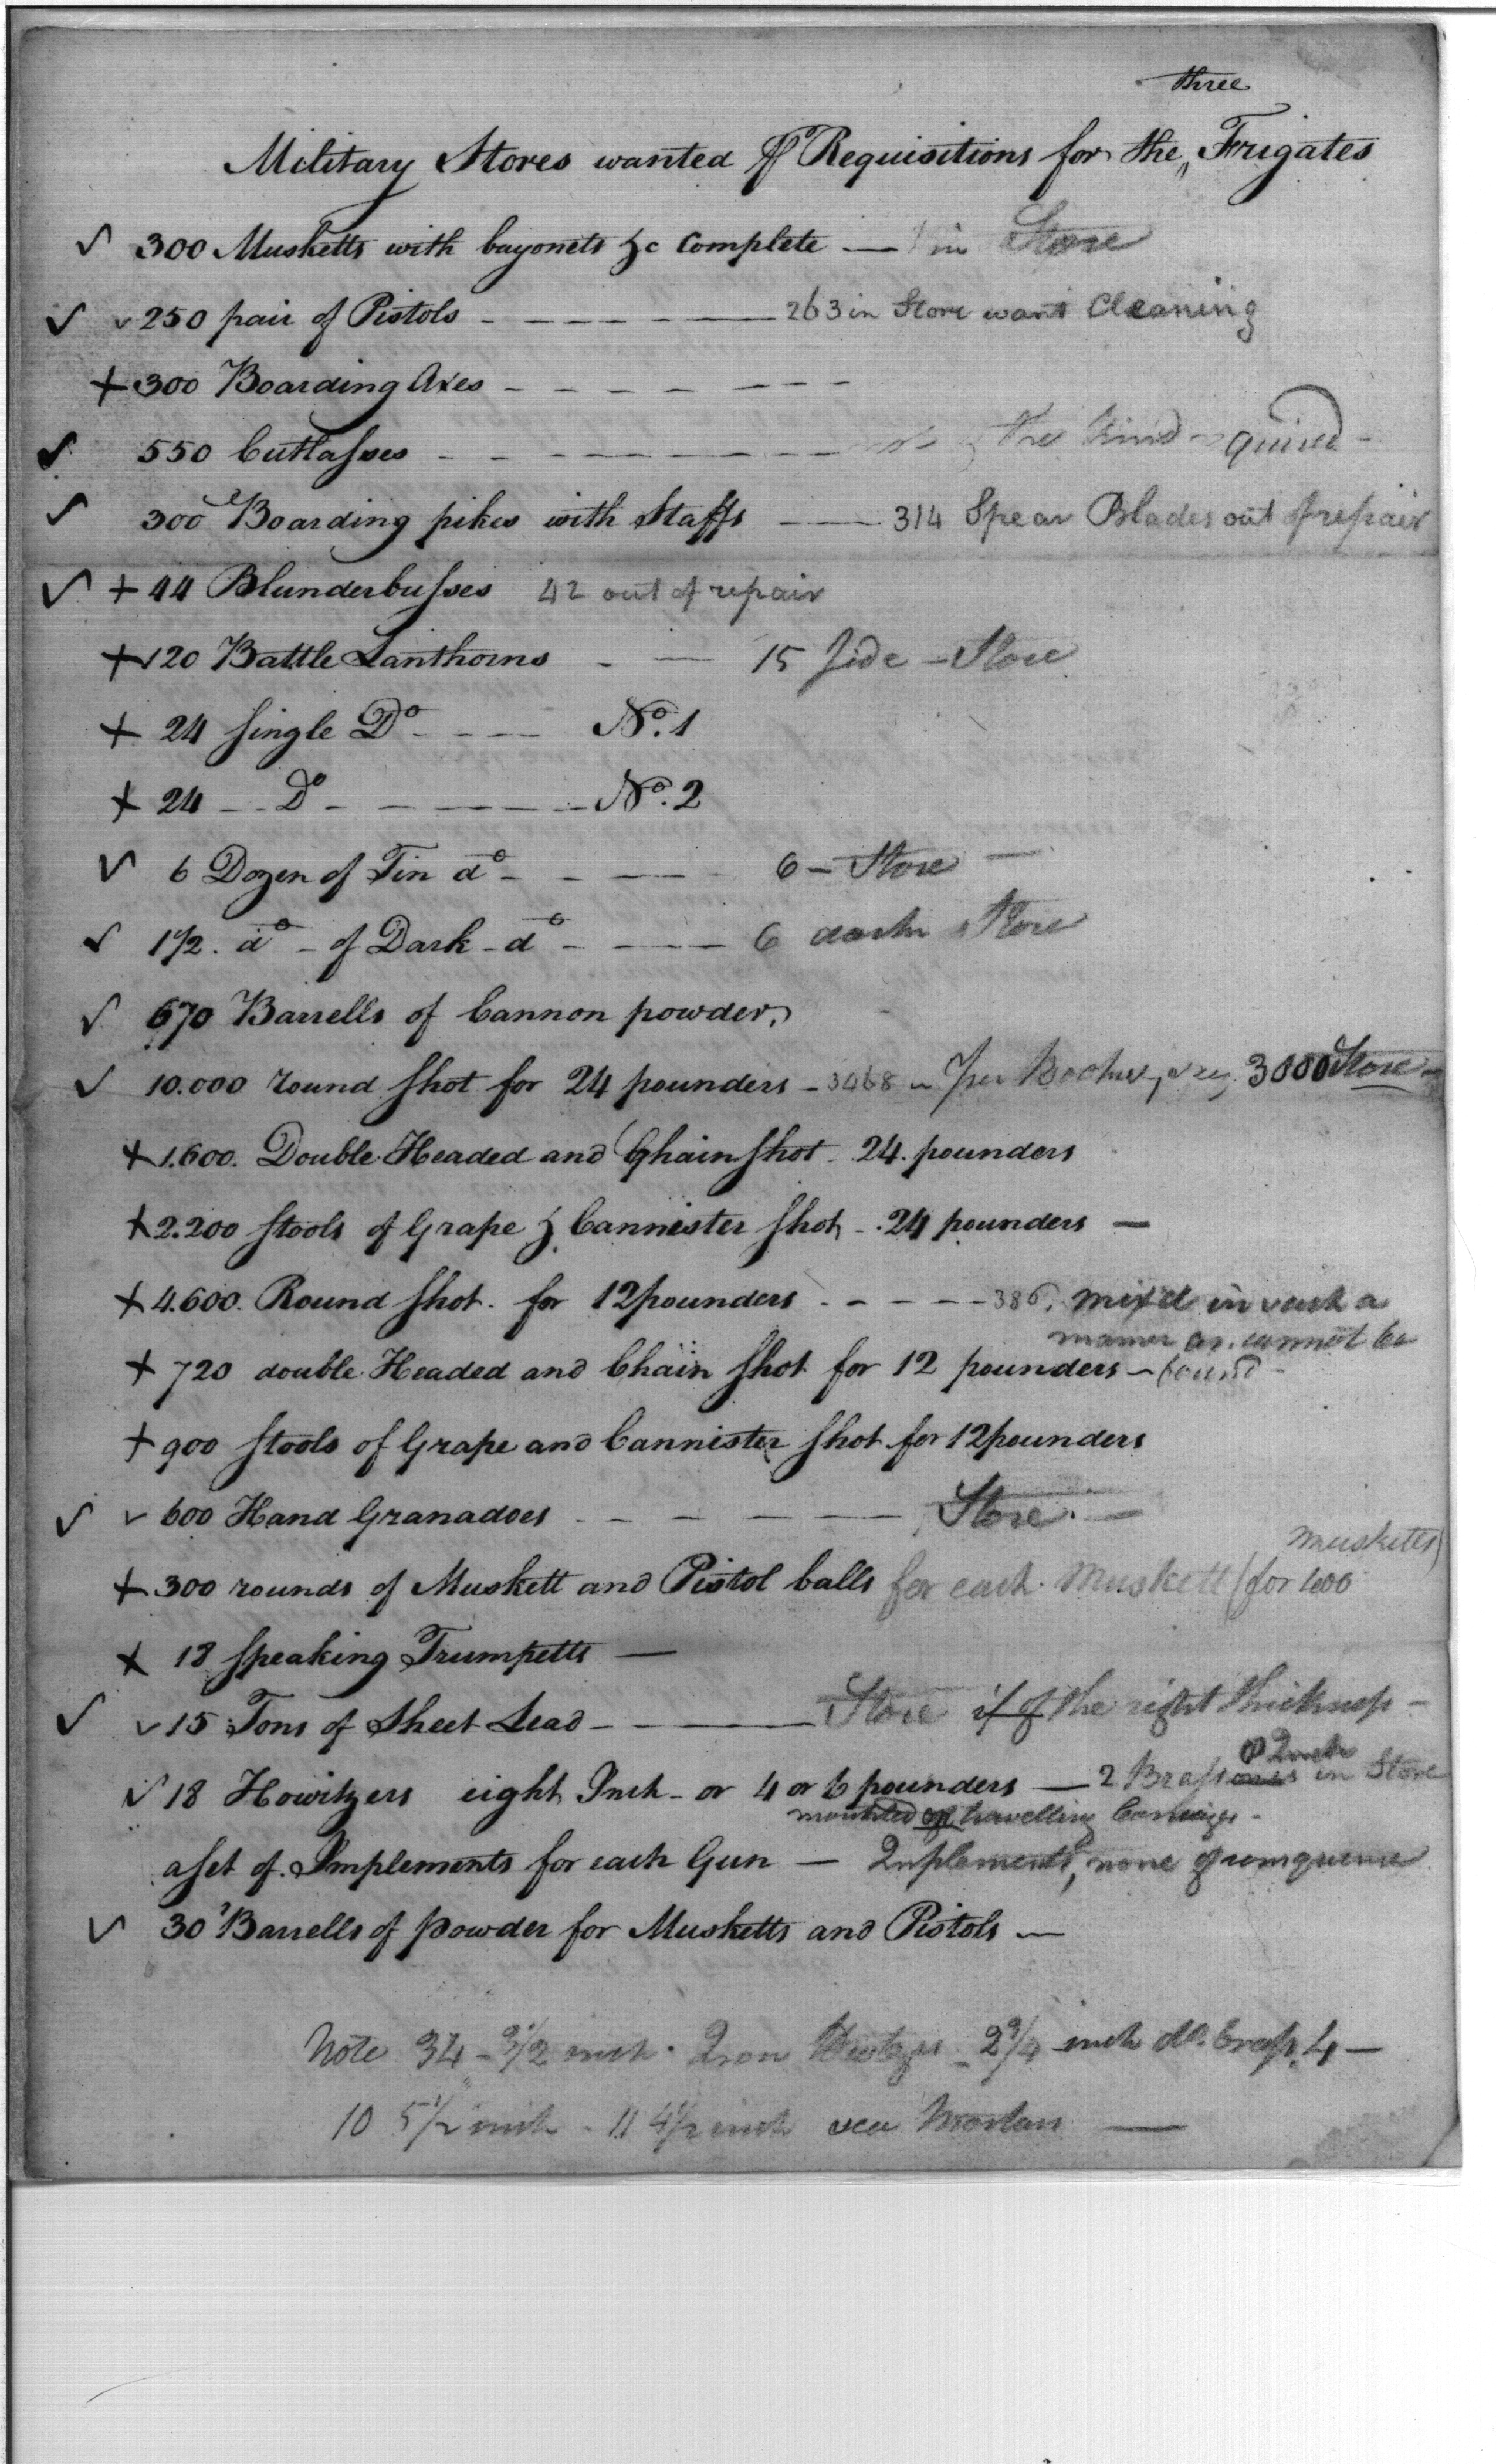 three
Military Stores wanted ⅌ Requisitions for the Frigates
✓ 300 Musketts with bayonets &c Complete — in Store
✓ ✓ 250 pair of Pistols - - - - - — 263 in Store want Cleaning
+ 300 Boarding Axes - - - - - - -
✓ 550 Cutlasses - - - - - - - the kind required -
✓ 300 Boarding pikes with Staffs — 314 Spear Blades out of repair
✓ + 44 Blunderbusses 42 out of repair
+ 120 Battle Lanthorns - — 15 side - Store
+ 24 single Do - - - - No. 1
+ 24 - - Do - - - - - No. 2
✓ 6 Dozen of Tin do - - - - - 6 - Store —
✓ 1 1/2. do - of Dark - do - - - - 6 dark Store
✓ 670 Barrells of Cannon powder,
✓ 10.000 round shot for 24 pounders - 3468 3000 Store -
+ 1.600. Double Headed and Chain shot - 24. pounders
+ 2.200 stools of Grape & Cannister shot - . 24 pounders —
+ 4.600. Round shot. for 12 pounders - - - - - 386, mix'd in such a
manner as. cannot be
+ 720 double Headed and Chain shot for 12 pounders - found -
+ 900 stools of Grape and Cannister shot for 12 pounders
✓ ✓ 600 Hand Granadoes - - - - - — Store. —
musketts)
+ 300 rounds of Muskett and Pistol balls for each Muskett (for 400
+ 18 speaking Trumpetts —
✓ ✓ 15 Tons of Sheet Lead - - — Store if of the right thickness -
Inch
✓ 18 Howitzers eight Inch - or 4 or 6 pounders — 2 Brass in Store
mounted on travelling Carriages -
a set of Implements for each Gun — Implements, none of consequence
✓ 30 Barrells of powder for Musketts and Pistols —
Note 34 - 3 1/2 inch. Iron - 2 3/4 inch do. brass, 4 —
10 5 1/2 inch - 11 4 1/2 inch Mortars —